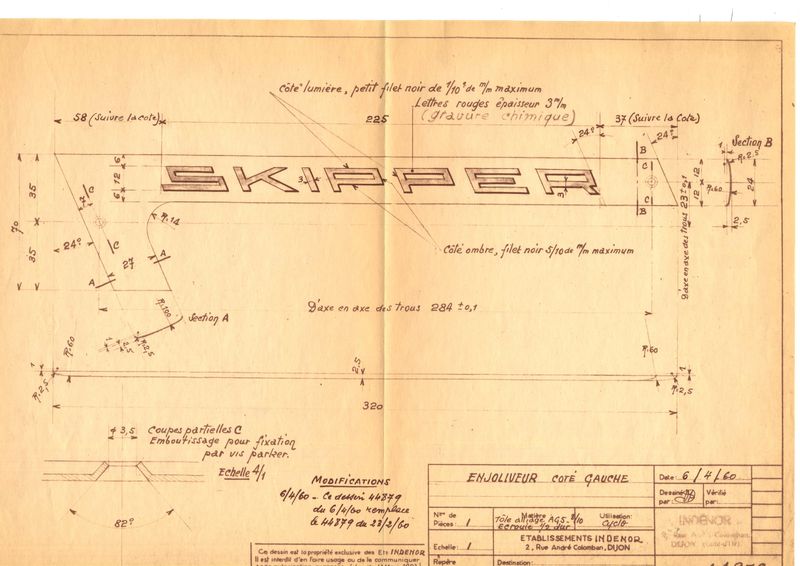 Côté lumière, petit filet noir de 1/10è de m/m maximum
Lettres rouges épaisseur 3 m/m
58 (Suivre la cote)
225
(gravure chimique)
37 (Suivre la Cote)
24°
24°
Section B
B
1
R.2,5
SKIPPER
6
12
6
3
3
C
C
B
12
12
R.60
24
2,5
70
35
35
C
C
24°
27
R.14
A
A
Côté ombre, filet noir 5/10 de m/m maximum
D'axe en axe des trous 23 ±0,1
R.100
Section A
R.2,5
2,5
D'axe en axe des trous 284 ±0,1
R.60
R.60
1
R.2,5
2,5
1
R.2,5
320
43,5
Coupes partielles C
Emboutissage pour fixation
par vis parker.
Echelle 4/1
82°
MODIFICATIONS
6/4/60 - Ce dessin 44879
du 6/4/60 remplace
le 44879 du 23/2/60
ENJOLIVEUR COTÉ GAUCHE
Date: 6/4/60
Dessiné
par:
Vérifié
par:
Nbre de
Pièces: 1
Matière
Tôle alliage AG5
Ecrouie 1/2 dur
Utilisation:
Cyclo
INDENOR
DIJON
Echelle: 1
ETABLISSEMENTS INDENOR
2, Rue André Colomban, DIJON
Repère
Destination:
Ce dessin est la propriété exclusive des Ets INDENOR
Il est interdit d'en faire usage ou de le communiquer